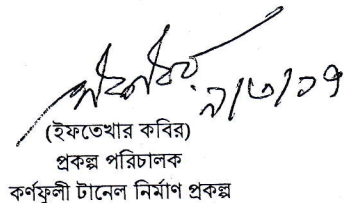 ৯/৩/১৭
(ইফতেখার কবির)
প্রকল্প পরিচালক
কর্ণফুলী টানেল নির্মাণ প্রকল্প